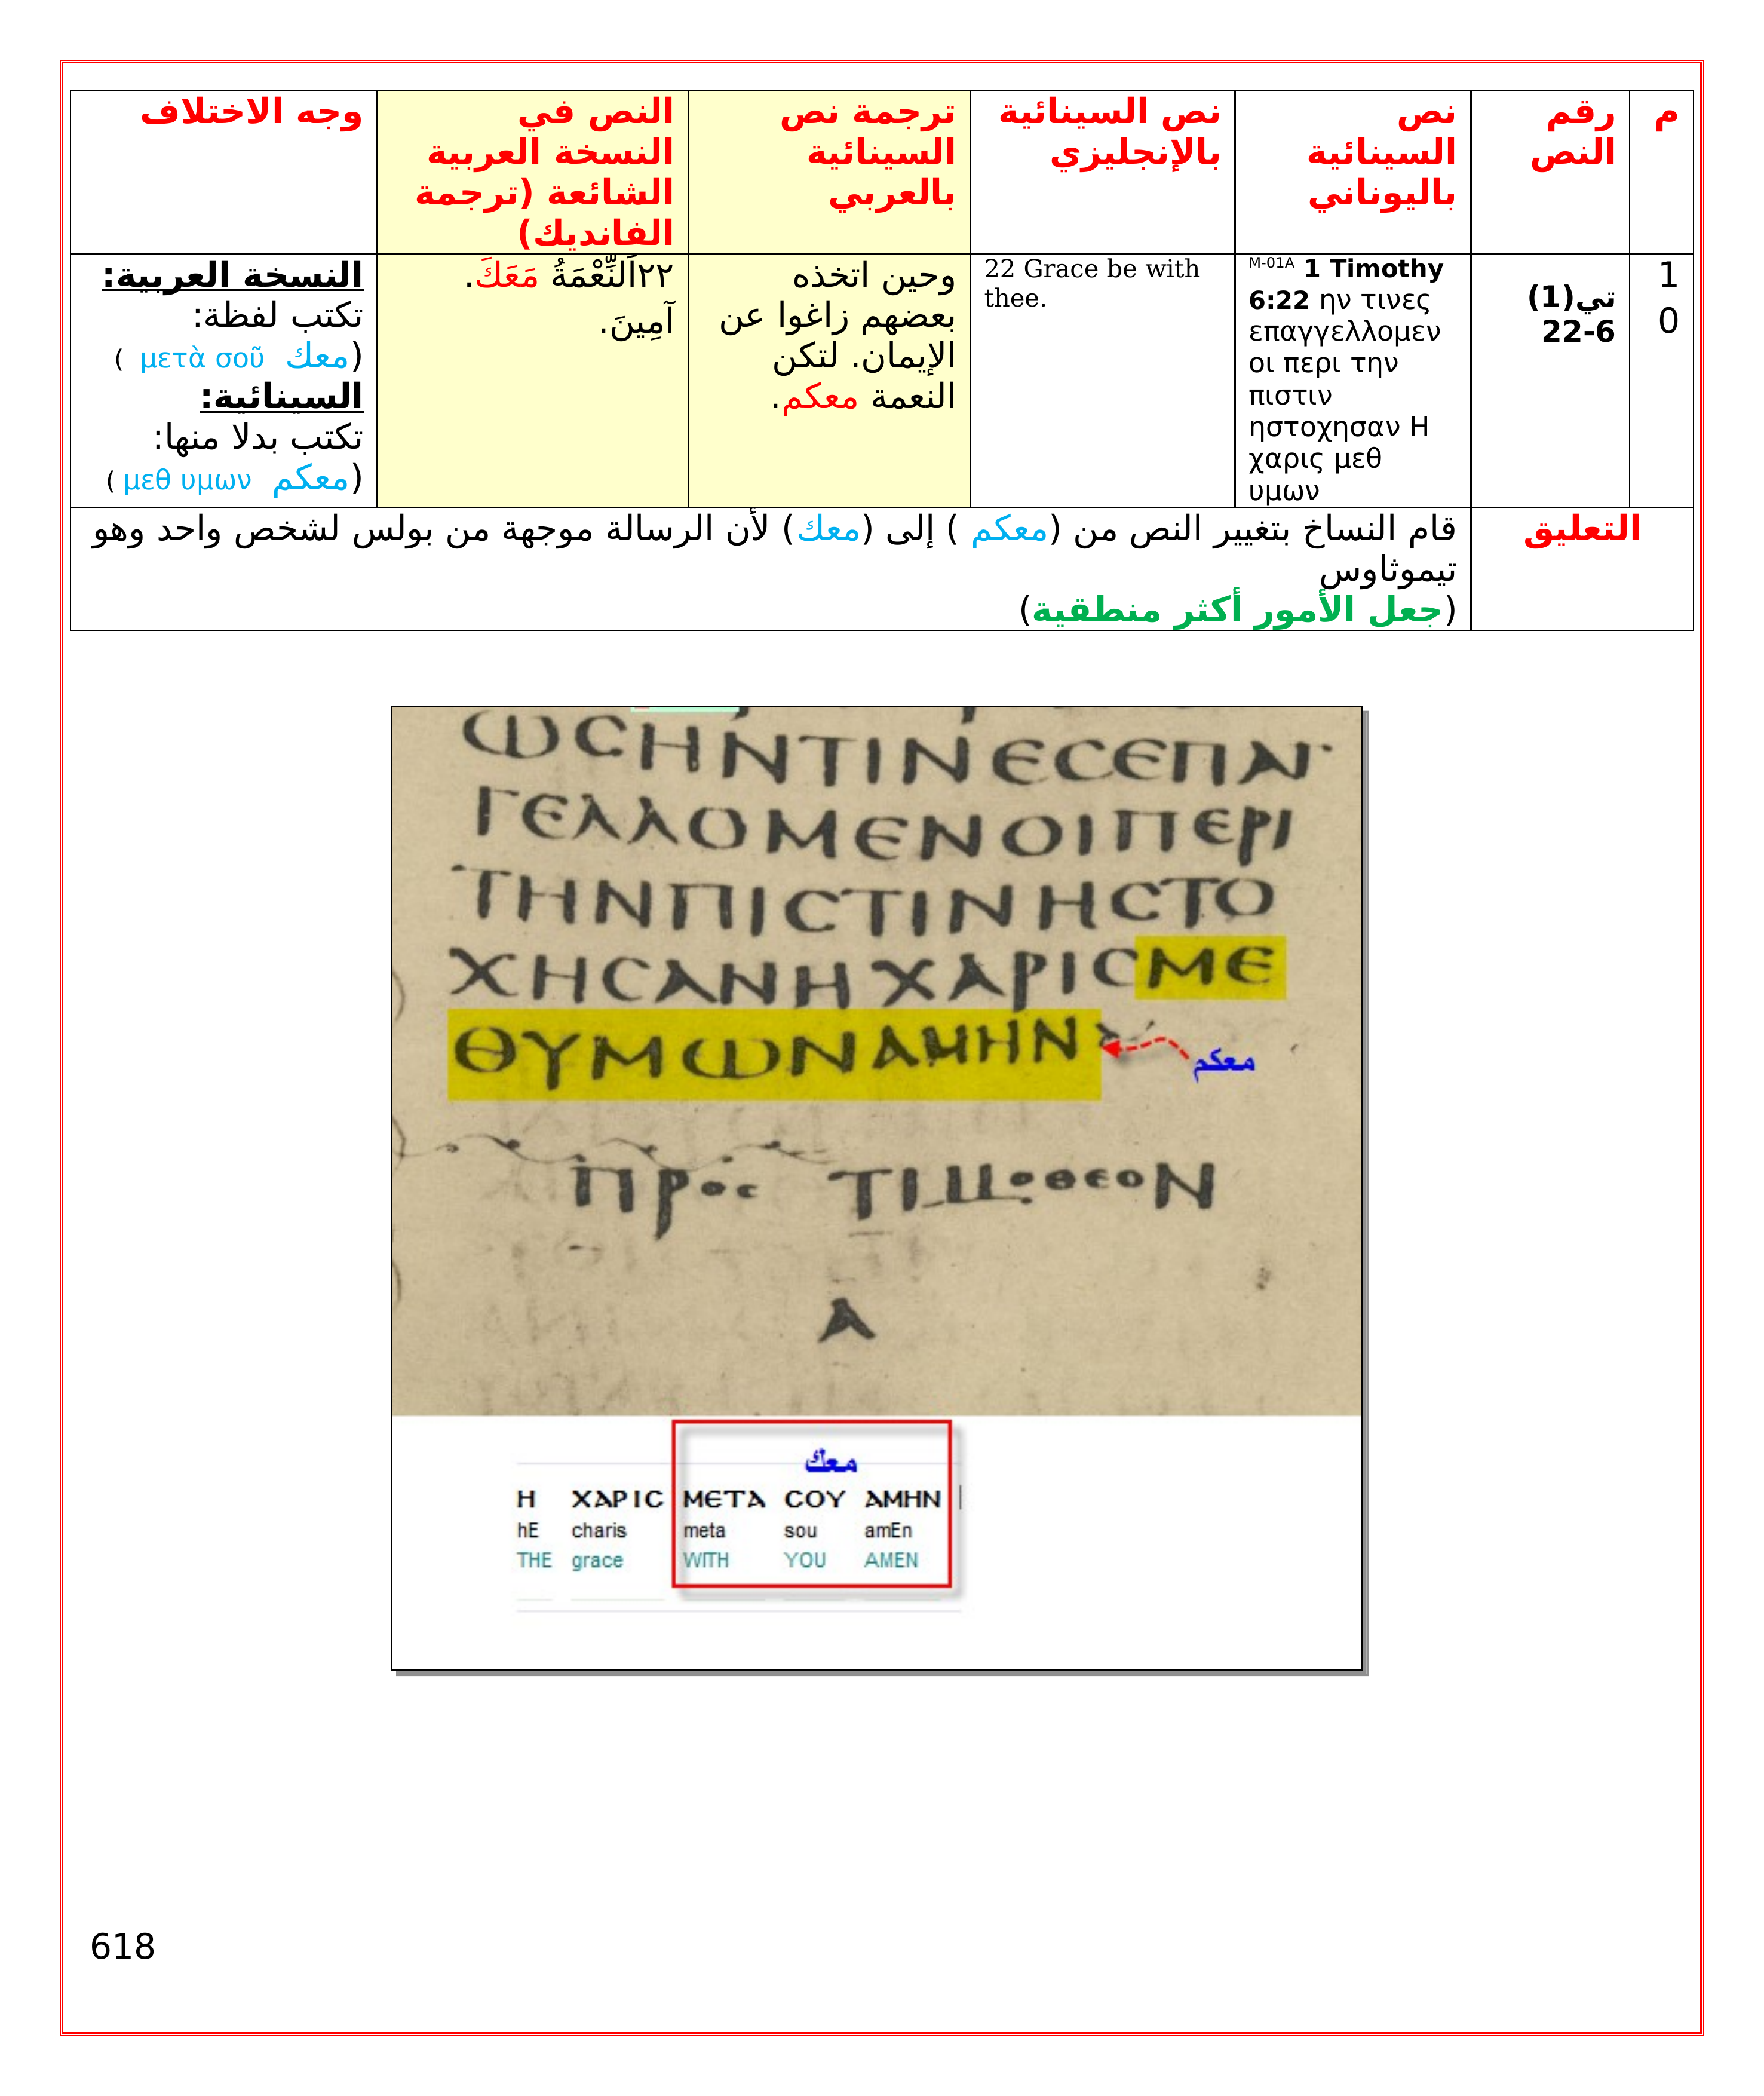 م
رقم
النص
نص
السينائية
باليوناني
نص السينائية
بالإنجليزي
ترجمة نص
السينائية
بالعربي
النص في
النسخة العربية
الشائعة (ترجمة
الفانديك)
وجه الاختلاف
1
0
تي(1)
22-6
M-01A 1 Timothy
6:22 ην τινες
επαγγελλομεν
οι περι την
πιστιν
ηστοχησαν Η
χαρις μεθ
υμων
22 Grace be with
thee.
وحين اتخذه
بعضهم زاغوا عن
الإيمان. لتكن
النعمة معكم.
٢٢اَلنِّعْمَةُ مَعَكَ.
آمِينَ.
النسخة العربية:
تكتب لفظة:
(معك μετὰ σοῦ )
السينائية:
تكتب بدلا منها:
(معكم μεθ υμων )
التعليق
قام النساخ بتغيير النص من (معكم ) إلى (معك) لأن الرسالة موجهة من بولس لشخص واحد وهو
تيموثاوس
(جعل الأمور أكثر منطقية)
ⲰⲤⲎⲚⲦⲒⲚⲈⲤⲈⲠⲀⲄ
ⲄⲈⲖⲖⲞⲘⲈⲚⲞⲒⲠⲈⲢⲒ
ⲦⲎⲚⲠⲒⲤⲦⲒⲚⲎⲤⲦⲞ
ⲬⲎⲤⲀⲚⲎⲬⲀⲢⲒⲤⲘⲈ
ⲐⲨⲘⲰⲚⲀⲘⲎⲚ
معكم
ⲠⲢⲞⲤ ⲦⲒⲘⲞⲐⲈⲞⲚ
Ⲁ
معك
Ⲏ ⲬⲀⲢⲒⲤ ⲘⲈⲦⲀ ⲤⲞⲨ ⲀⲘⲎⲚ
hE charis meta sou amEn
THE grace WITH YOU AMEN
618